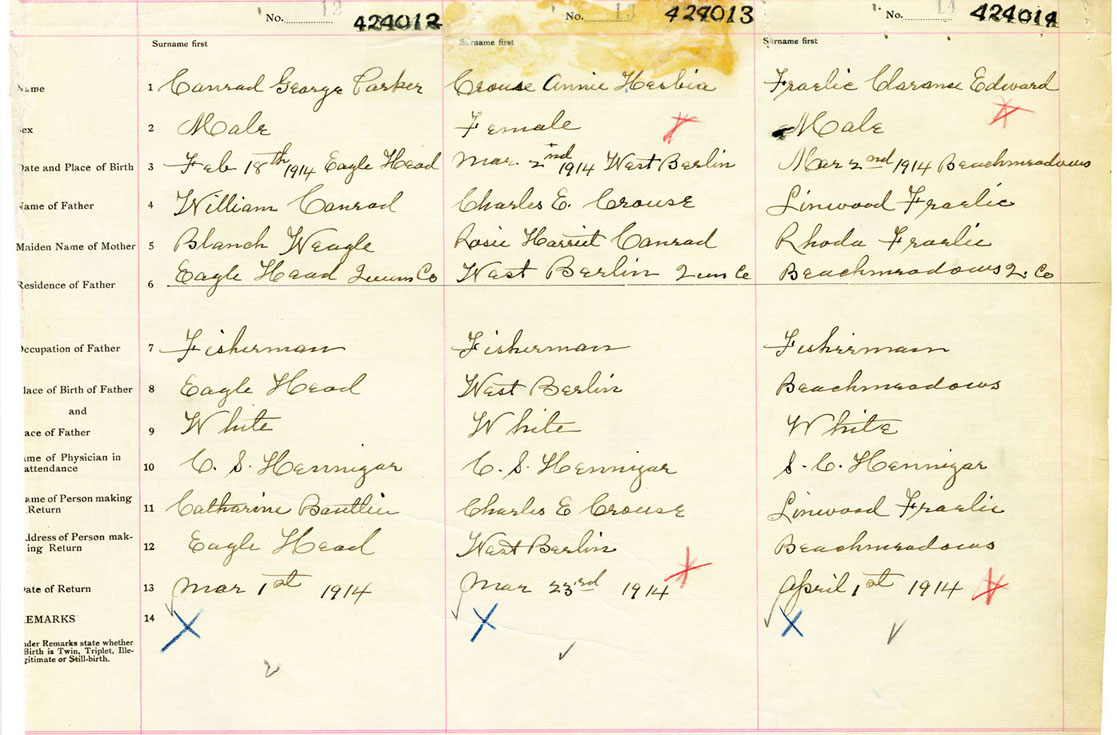 No. 12 424012 No. 13 424013 No. 14 424014
Surname first Surname first Surname first
Name 1 Conrad George Parker Crouse Annie Fraelic Clarance Edward
Sex 2 Male Female Male
Date and Place of Birth 3 Feb 18th 1914 Eagle Head Mar. 2nd 1914 West Berlin Mar 2nd 1914 Beachmeadows
Name of Father 4 William Conrad Charles E. Crouse Linwood Fraelic
Maiden Name of Mother 5 Blanch Weagle Rosie Harriet Conrad Rhoda Fraelic
Residence of Father 6 Eagle Head Queens Co West Berlin Queens Co Beachmeadows Q. Co
Occupation of Father 7 Fisherman Fisherman Fisherman
Place of Birth of Father 8 Eagle Head West Berlin Beachmeadows
and
Race of Father 9 White White White
Name of Physician in
attendance 10 C. S. Hennigar C. S. Hennigar S. C. Hennigar
Name of Person making
Return 11 Catharine Charles E Crouse Linwood Fraelic
Address of Person mak-
ing Return 12 Eagle Head West Berlin Beachmeadows
Date of Return 13 Mar 1st 1914 Mar 23rd 1914 April 1st 1914
REMARKS 14
Under Remarks state whether
Birth is Twin, Triplet, Ille-
gitimate or Still-birth.